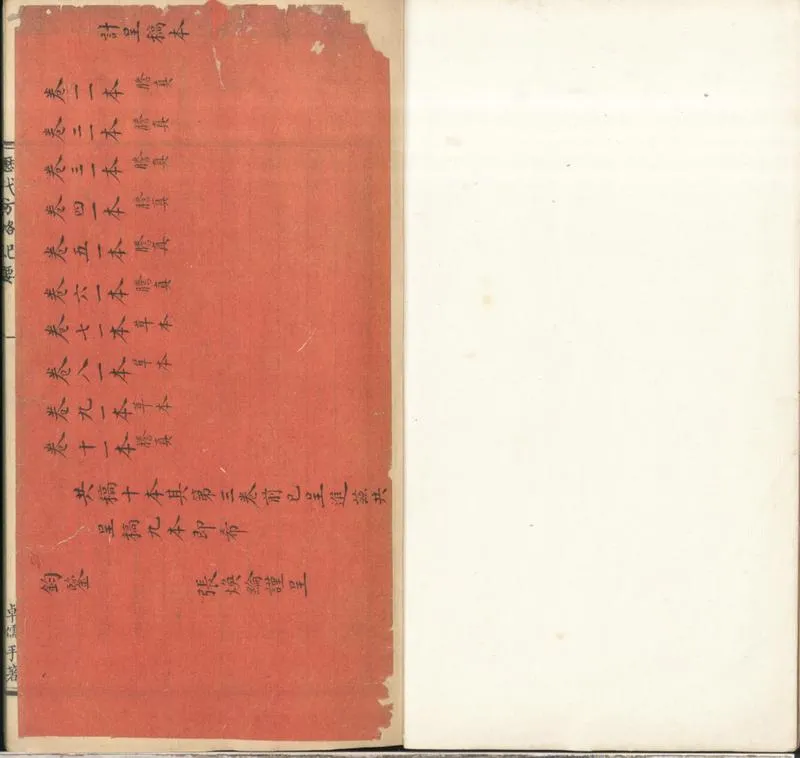 計呈稿本
卷一一本謄真
卷二一本謄真
卷三一本謄真
卷四一本謄真
卷五一本謄真
卷六一本謄真
卷七一本草本
卷八一本草本
卷九一本草本
卷十一本謄真
共稿十本其第三卷前已呈進茲共
呈稿九本即布
鈞鑒
張煥綸謹呈
手著